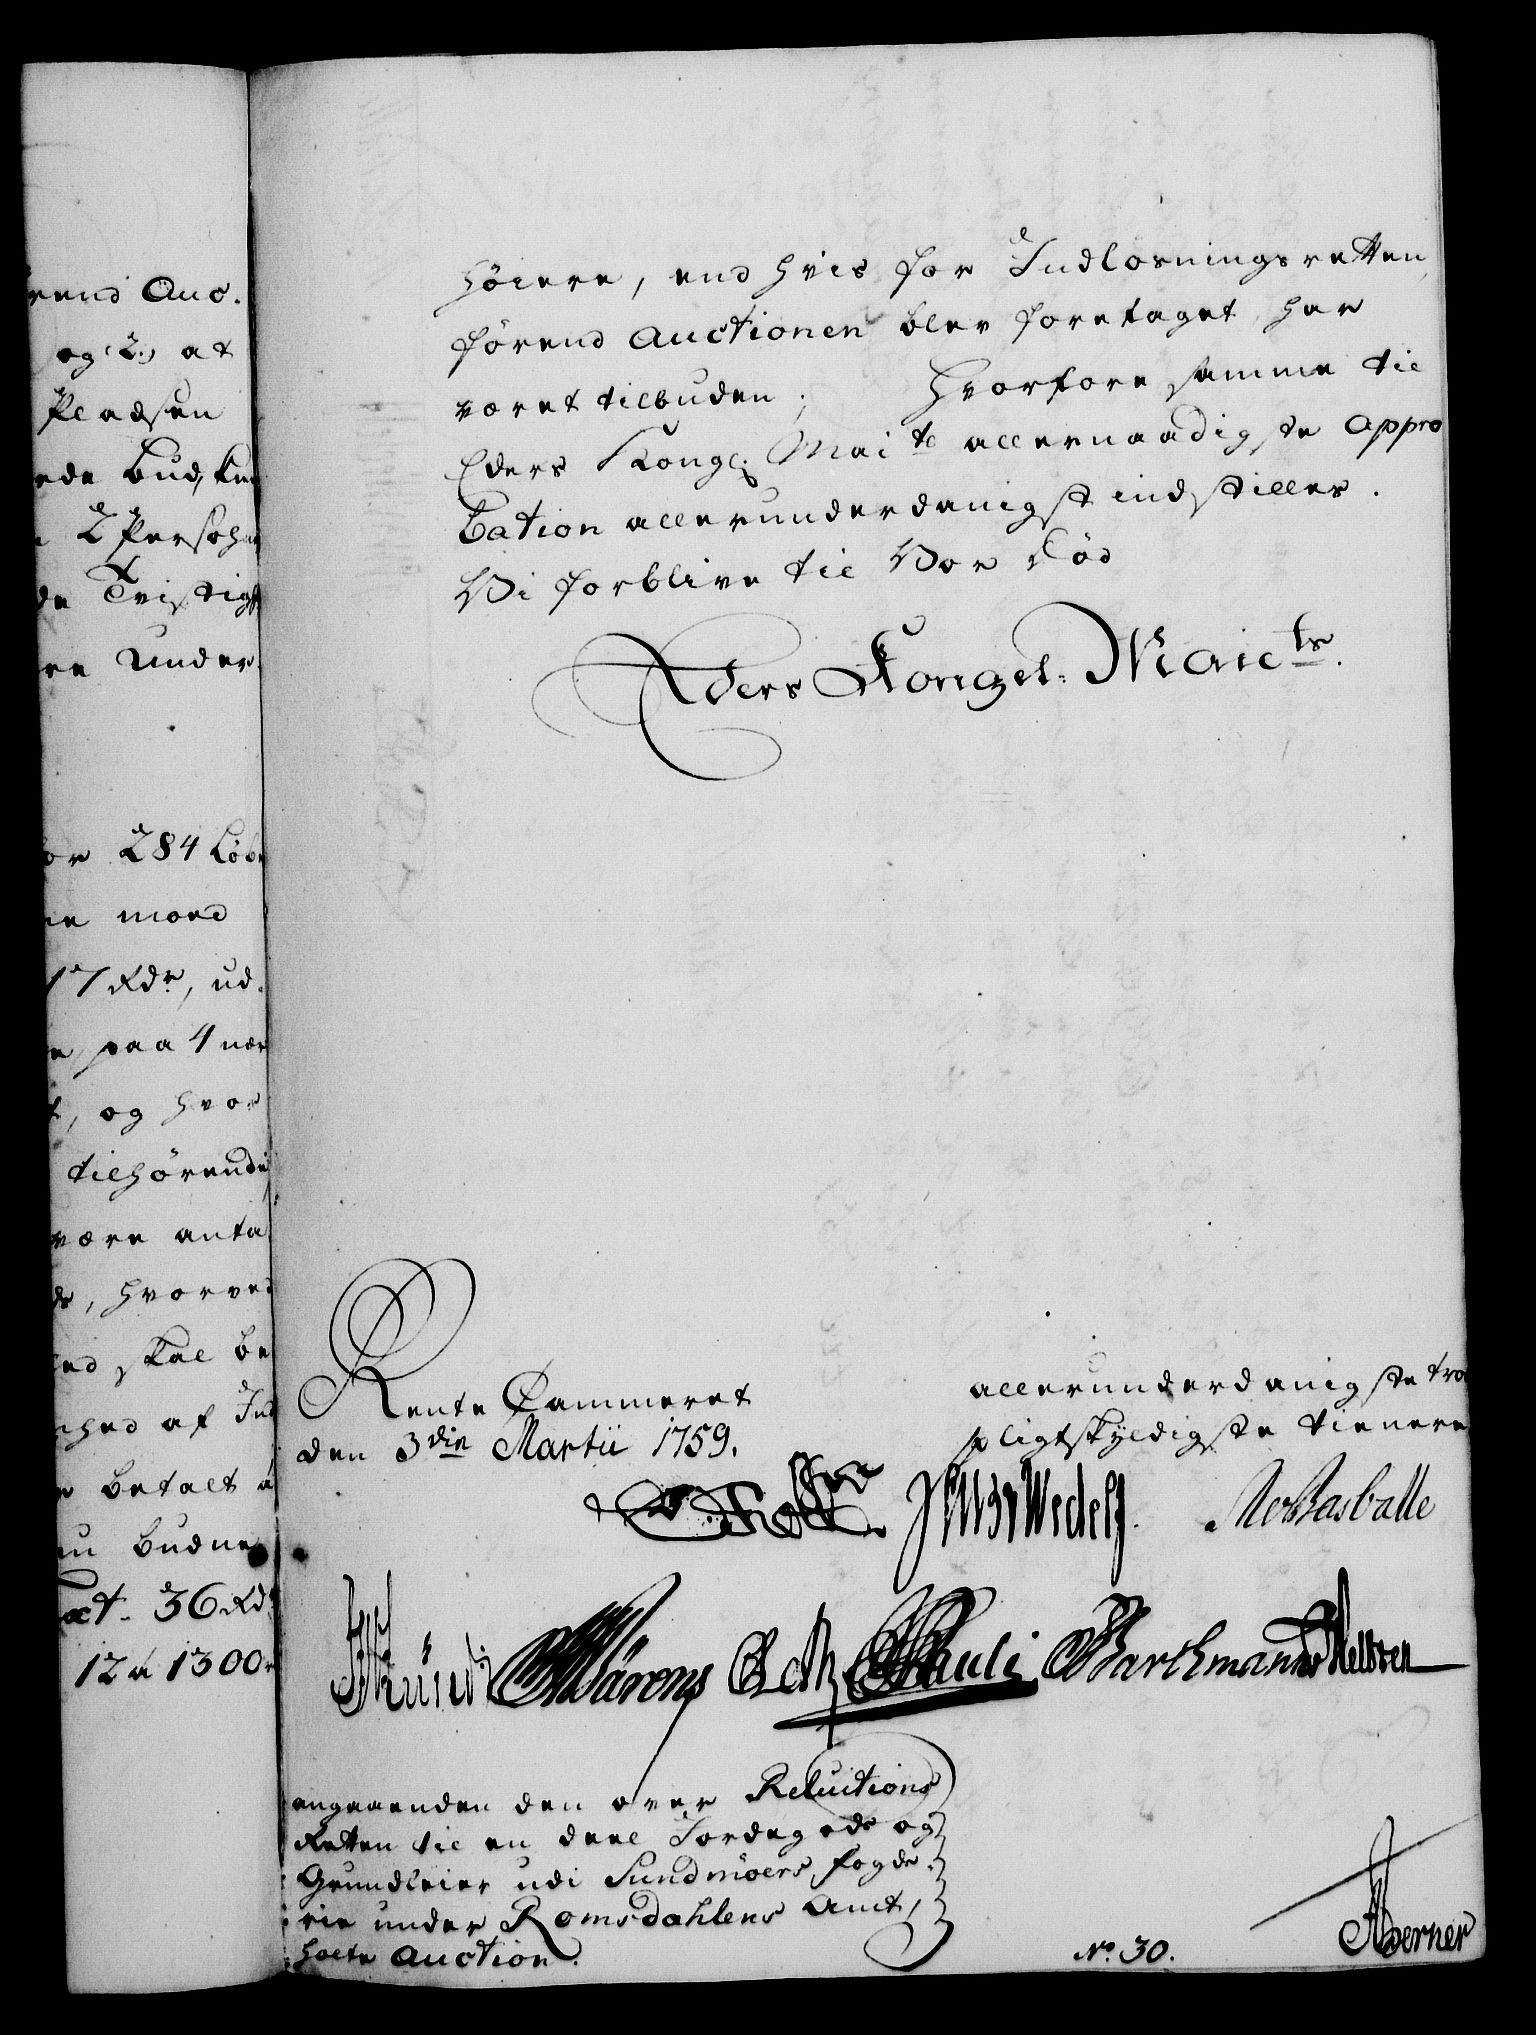 rend Auc-
og 2.) at
Pladsen
ede bud, kun
2 Persohn
de Tvistigh
re under
or 284 Løbr
ne moed
17 Rdr, ud-
e, paa 4 nær
t, og hvor
tilhørende
være anta
de, hvorved
hed skal be
hed af Ind
r betalt a
en budne
act. 36 Rdr
12 a 1300
høiere, end hvis for Indløsningsretten,
førend Auctionen blev foretaget, har
været tilbuden; Hvorfore samme til
Eders Kongl. Maits allernaadigste Appro
bation allerunderdanigst indstilles.
Vi forblive til Vor Død
Eders Kongel. Maits.
Rente Cammeret
den 3die Martii 1759.
allerunderdanigste tro
pligtskyldigste tienere
Wedell
Rasballe
Wärens Pauli Barthmann
angaaenden den over Reluitions
Retten til en deel Jordegods og
Grundleier udi Sundmöers Fogde-
rie under Romsdahlens Amt,
holte Auction.
No. 30.